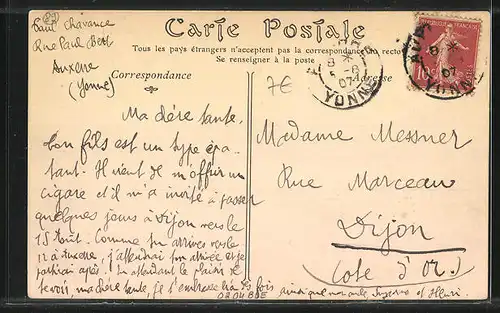 (89)
Paul Chavance
Rue Paul Bert
Auxerre
(Yonne)
Carte Postale
Tous les pays étrangers n'acceptent pas la correspondance au recto
Se renseigner à la poste
Correspondance
Adresse
7€
YONNE
8
5 -8
07
REPUBLIQUE FRANÇAISE
10c
YONNE
07
Ma chère tante,
Ton fils est un type épa-
tant. Il vient de m'offrir un
cigare et il m'a invité à passer
quelques jours à Dijon vers le
15 Août. Comme tu arrives vers le
12 à Auxerre, j'attendrai ton arrivée et je
partirai après. En attendant le plaisir de
te voir, ma chère tante, je t'embrasse fois
ainsi que Suzanne et Henri.
Madame Messner
Rue Marceau
Dijon
(Côte d'Or.)